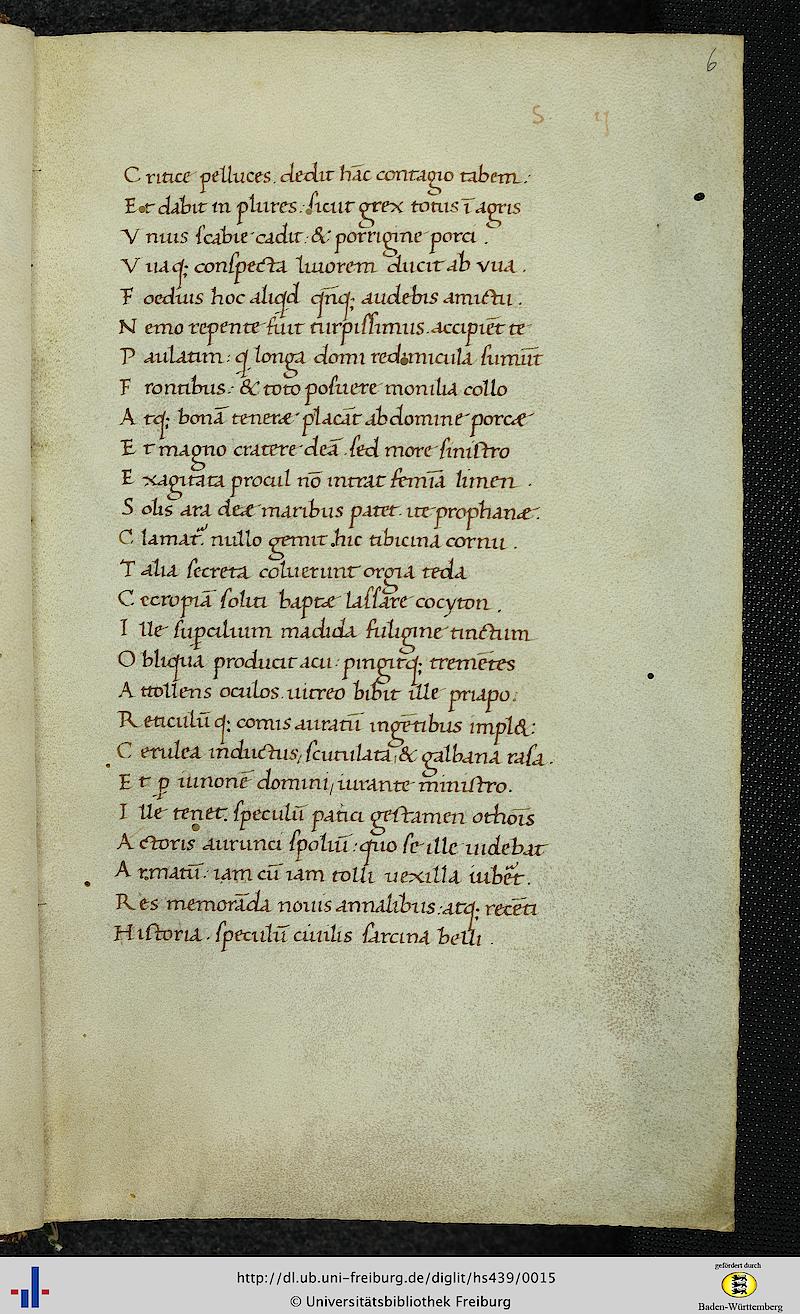 6
S. ij
C ritice pelluces. dedit hāc contagio tabem:
E t dabit in plures: sicut grex totus ī agris
V nius scabie cadit: & porrigine porci.
V uaq; conspecta liuorem ducit ab vua.
F oedius hoc aliqđ qñq; audebis amictu.
N emo repente fuit turpissimus. accipiēt te
P aulatim: q longa domi redimicula sumūt
F rontibus: & toto posuere monilia collo
A tq; bonā teneræ placāt abdomine porcæ
E t magno cratere deā. sed more sinistro
E xagitata procul nō intrat femīa limen.
S olis ara deæ maribus patet. ite prophanæ.
C lamat᷑. nullo gemit hic tibicina cornu.
T alia secreta coluerunt orgia teda
C ecropiā soliti baptæ lassare cocyton.
I lle suꝑcilium madida fuligine tinctum
O bliqua producit acu: pingitq; tremētes
A ttollens oculos. uitreo bibit ille priapo.
R eticulū q; comis auratū ingētibus impl&:
C erulea inductus, scutulata, & galbana rasa.
E t ꝑ iunonē domini, iurante ministro.
I lle tenet. speculū patici gestamen othoīs
A ctoris aurunci spoliū: quo se ille uidebat
A rmatū: iam cū iam tolli uexilla iubēt.
R es memorāda nouis annalibus: atq; recēti
H istoria. speculū ciuilis sarcina belli.
http://dl.ub.uni-freiburg.de/diglit/hs439/0015
© Universitätsbibliothek Freiburg
gefördert durch
Baden-Württemberg